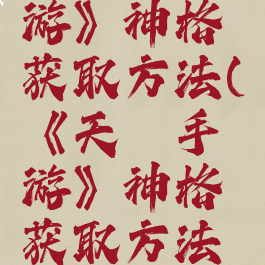 游》神格
获取方法(
《天 手
游》神格
获取方法